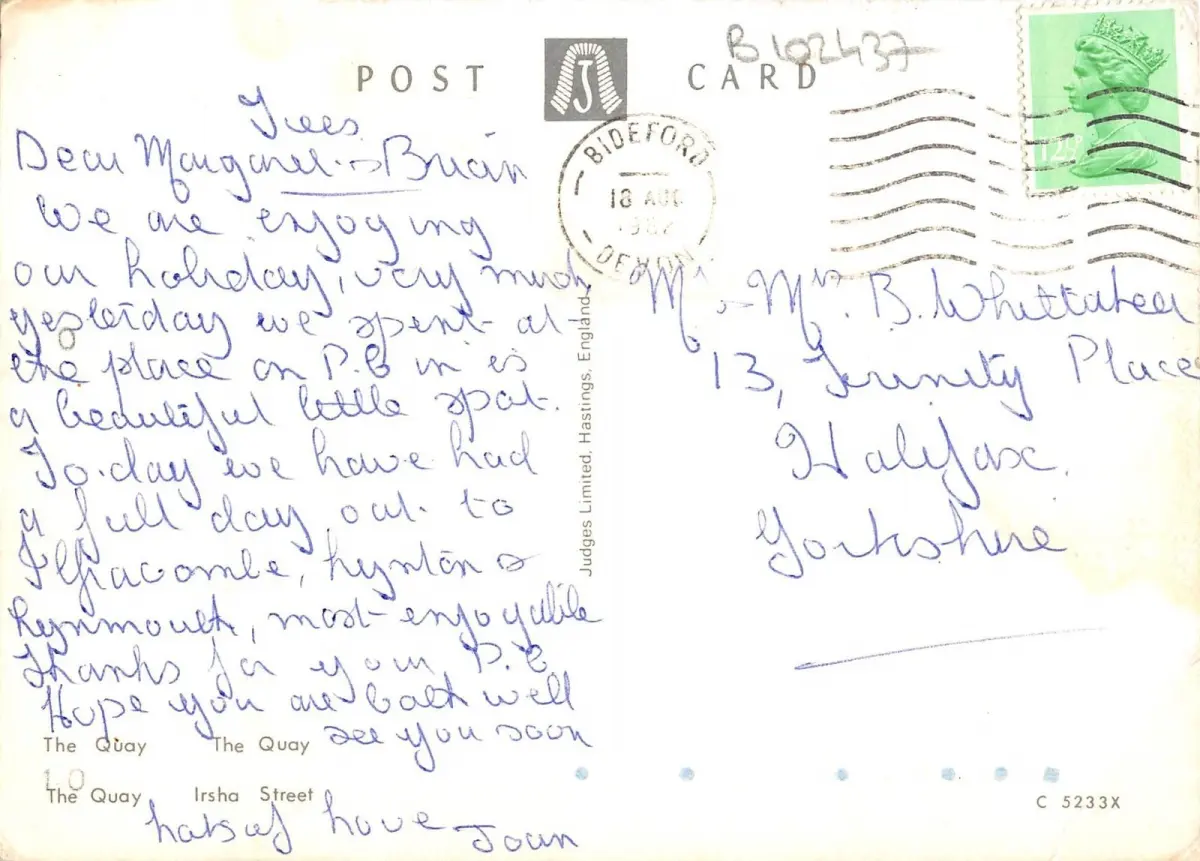 B102437
POST CARD
J
BIDEFORD
18 AUG
1982
DEVON
12½P
Tues
Dear Margaret & Brian
We are enjoying
our holiday, very much
yesterday we spent at
the place on P.C in is
a beautiful little spot.
To-day we have had
a full day out to
Ilfracombe, Lynton &
Lynmouth, most enjoyable
Thanks for your P.C
Hope you are both well
see you soon
Lots of Love Joan
Mr & Mrs B. Whittaker
13, Trinity Place
Halifax,
Yorkshire
Judges Limited, Hastings, England
The Quay The Quay
LO
The Quay Irsha Street
C 5233X